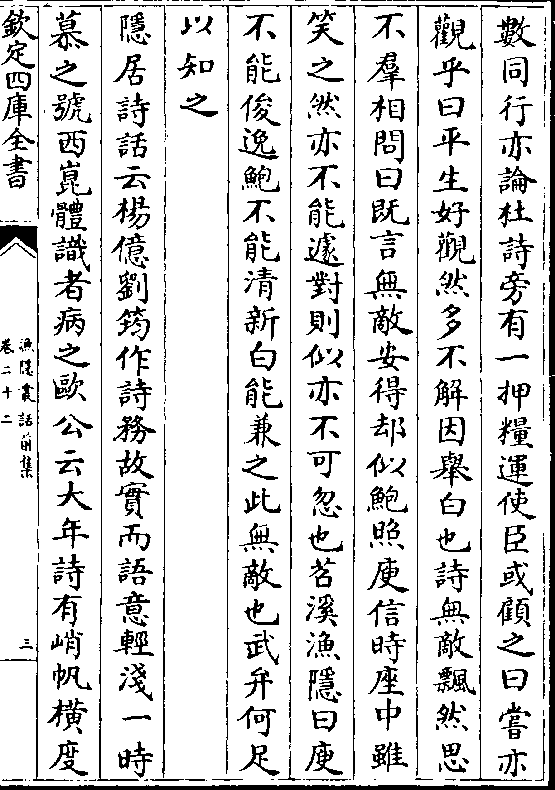 數同行亦論杜詩旁有一押糧運使臣或顧之曰嘗亦
觀乎曰平生好觀然多不解因舉白也詩無敵飄然思
不羣相問曰既言無敵安得却似鮑照庾信時座中雖
笑之然亦不能遽對則似亦不可忽也苕溪漁隱曰庾
不能俊逸鮑不能清新白能兼之此無敵也武弁何足
以知之
隱居詩話云楊億劉筠作詩務故實而語意輕淺一時
慕之號西崑體識者病之歐公云大年詩有峭帆橫度
欽定四庫全書
漁隱叢話前集
卷二十二
三